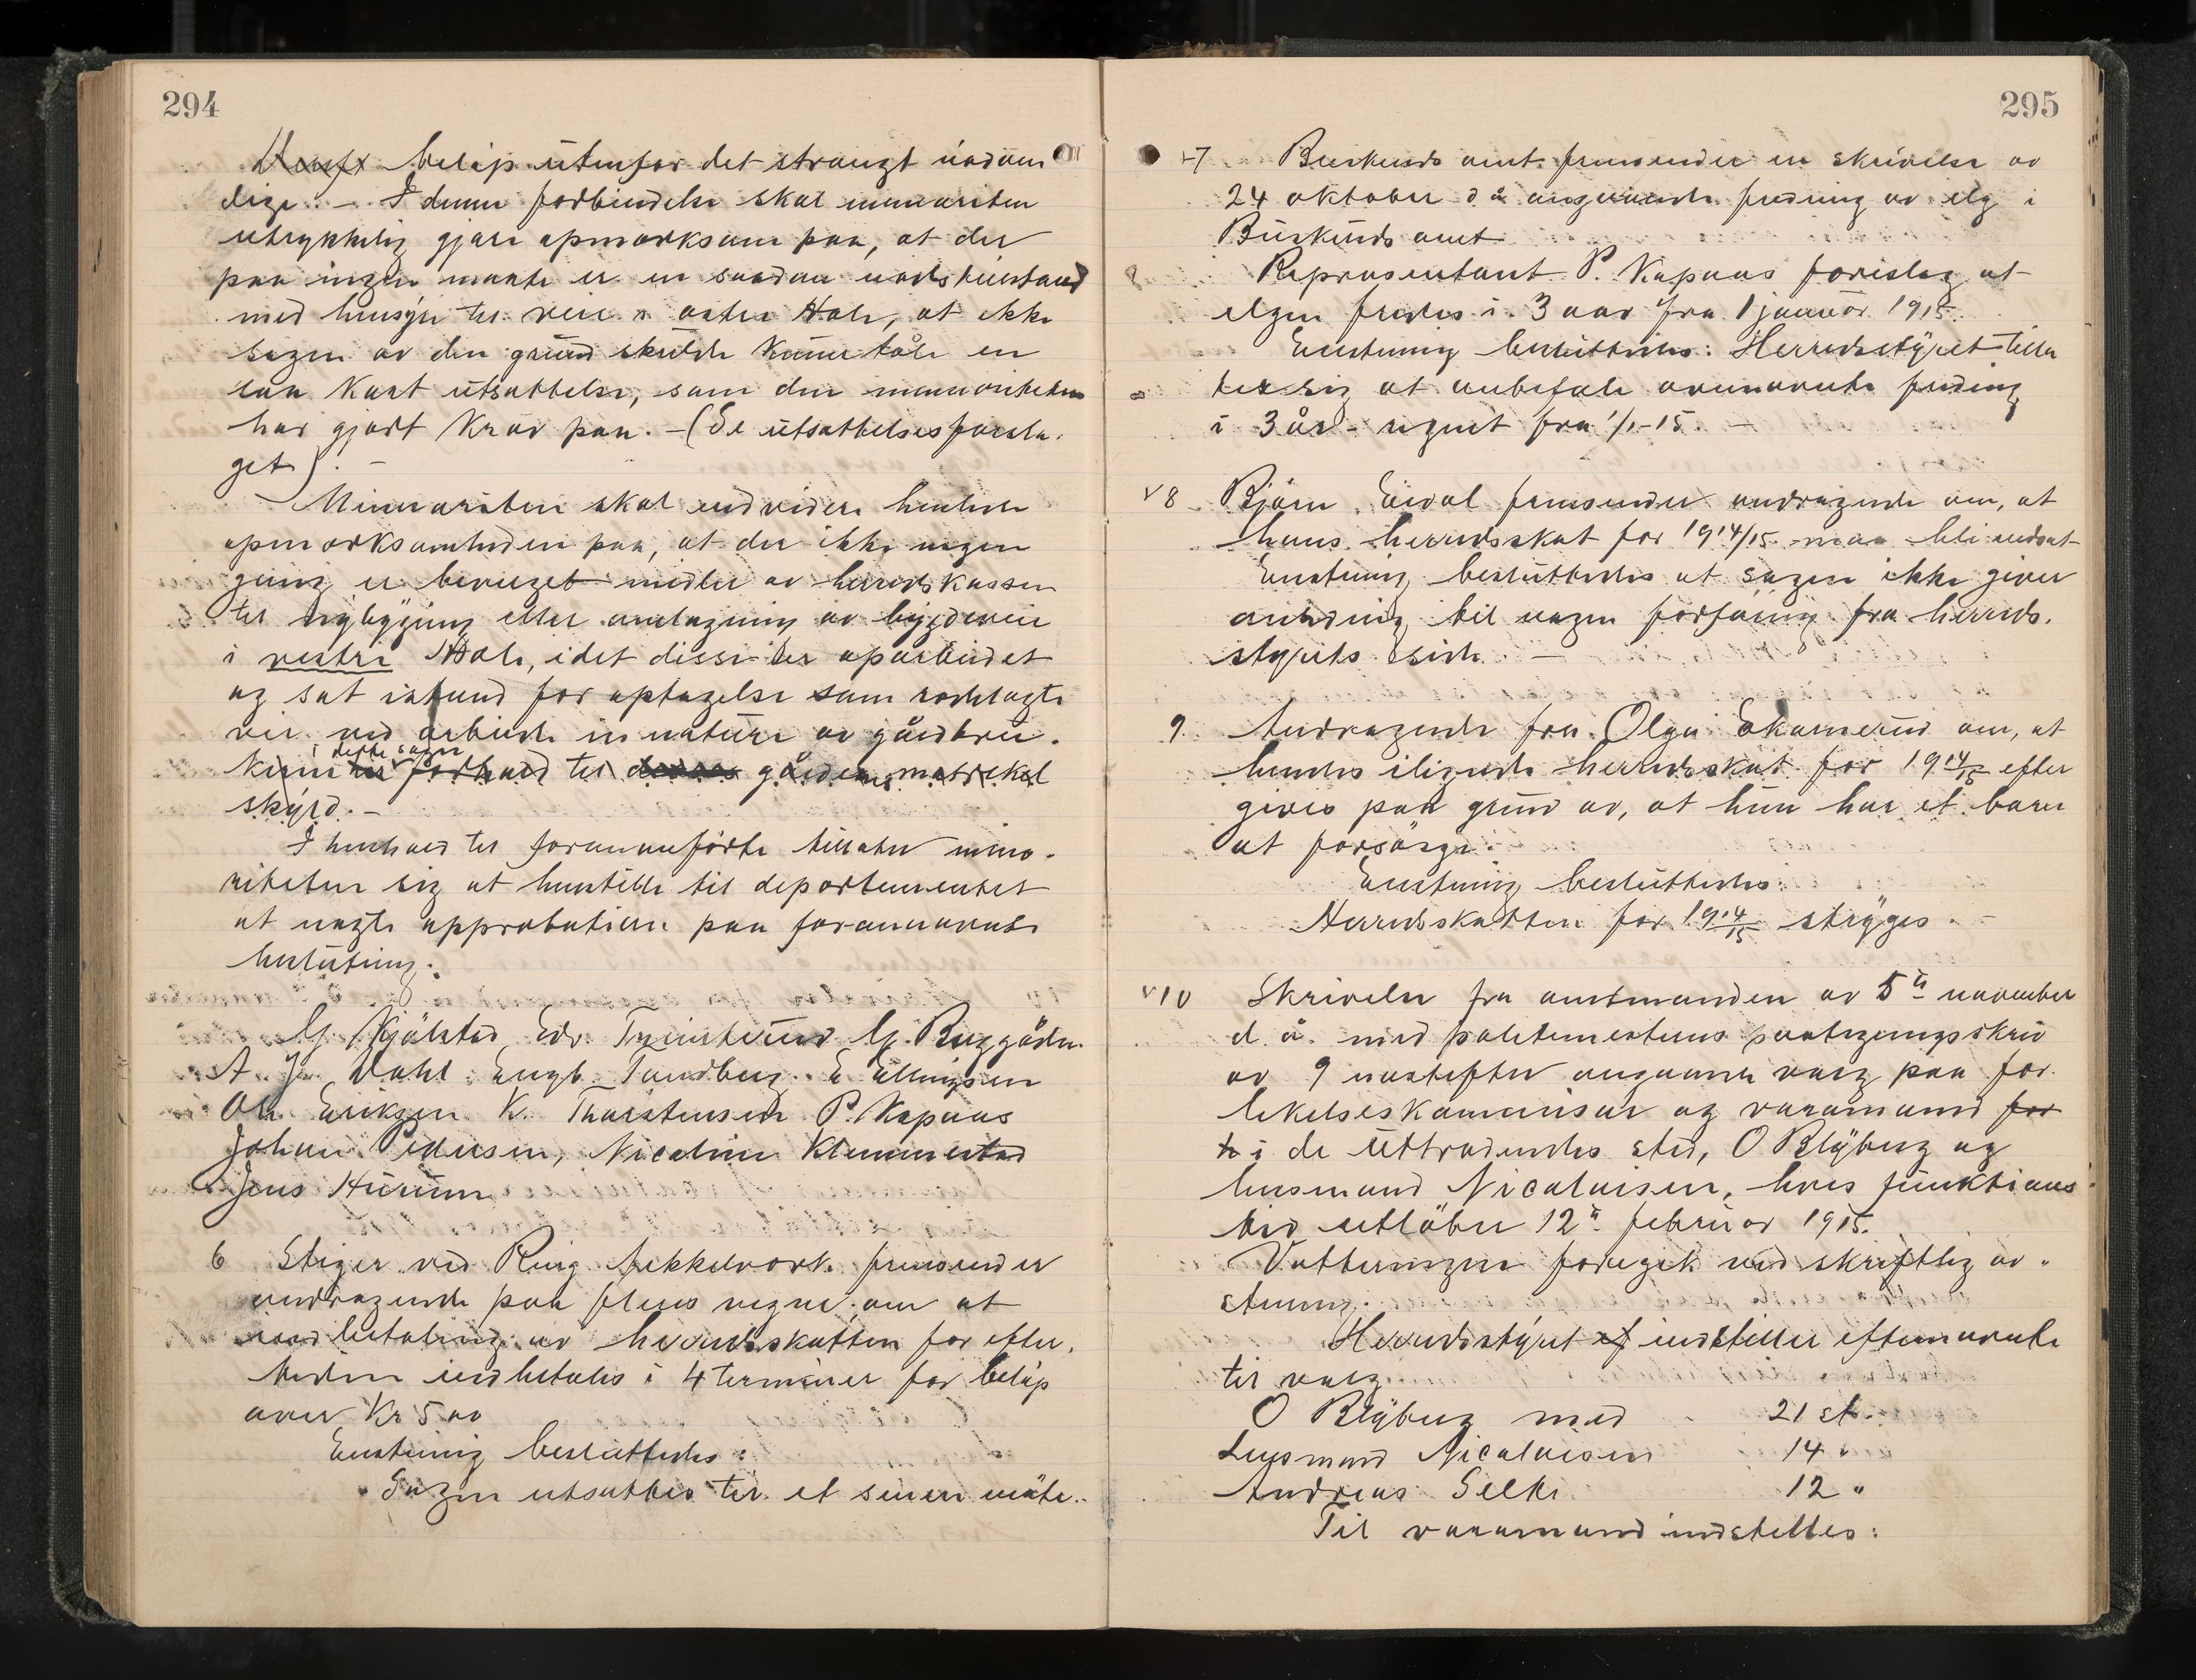 294
beløp utenfor det strengt nødven
dige. - I denne forbindelse skal minoriteten
uttrykkelig gjøre opmerksom paa, at der
paa ingen maate er en saadan nødstilstand
med hensyn til veie i østre Hole, at ikke
sagen av den grund skulde kunne tåle en
saa kort utsættelse, som den minoriteten
har gjort krav paa. - (Se utsættelsesforsla-
get). -
Minoriteten skal endvidere henlede
opmerksomheden paa, at der ikke nogen
gang er bevilget midler av herredskassen
til nybygging eller omlægning av bygdeveie
i vestre Hole, idet disse er oparbeidet
og sat istand for optagelse som rodelagte
vei ved arbeide in natura av gårdbru-
i dette sogn
kerne i forhold til gårdens matrikel
skyld. -
I henhold til forananførte tillater mino-
riteten sig at henstille til departementet
at negte approbation paa forannævnte
beslutning.
G. Kjølstad Edv. Tryinterud G. Byggården
A J. Dahl Engb. Tandberg. E Ellingsen
Ole Eriksen K. Thorstensen P. Kopaas
Johan Pedersen, Nicoline Klemmetsd
Jens Hurum
6 Stiger ved Ring. Nikkelverk fremsender
andragende paa fleres vegne om at
indbetaling av herredskatten for efter-
tiden indbetales i 4 terminer for beløp
over Kr 5 00
Enstemig besluttedes:
Sagen utsættes til et senere møte.
295
7 Buskeruds amt fremsender en skrivelse av
24 oktober d å angaaende fredning av elg i
Buskeruds amt
Representant P. Kopaas foreslog at
elgen fredes i 3 aar fra 1 januar 1915.
Enstemig besluttedes: Herredsstyret tilla
ter sig at anbefale ovennævnte fredning
i 3 år - regnet fra 1/1-15. -
v 8 Bjørn Eival fremsender andragende om, at
hans herredsskat for 1914/15 maa bli nedsat
Enstemig besluttedes at sagen ikke giver
anledning til nogen forføining fra herreds-
styrets side. -
9. Andragende fra Olga Ekornerud om, at
hendes ilignede herredsskat for 1914/15 efter
gives paa grund av, at hun har et barn
at forsörge.
Enstemig besluttedes:
Herredsskatten for 1914/15 stryges. -
v 10 Skrivelse fra amtmanden av 5te november
d. å. med politimesterens paategningsskriv
av 9 næstefter angaaende valg paa for
likelseskommissær og varamand for
i de uttrædendes sted, O Blyberg og
lensmand Nicolaisen, hvis funktions-
tid utløber 12te februar 1915.
Voteringen foregik ved skriftlig av-
stemng.
Herredsstyret indstiller eftenævnte
til valg.
O Blyberg med 21 st.
Lensmand Nicolaisen 14 "
Andreas Selte 12 "
Til varamand indstilles: